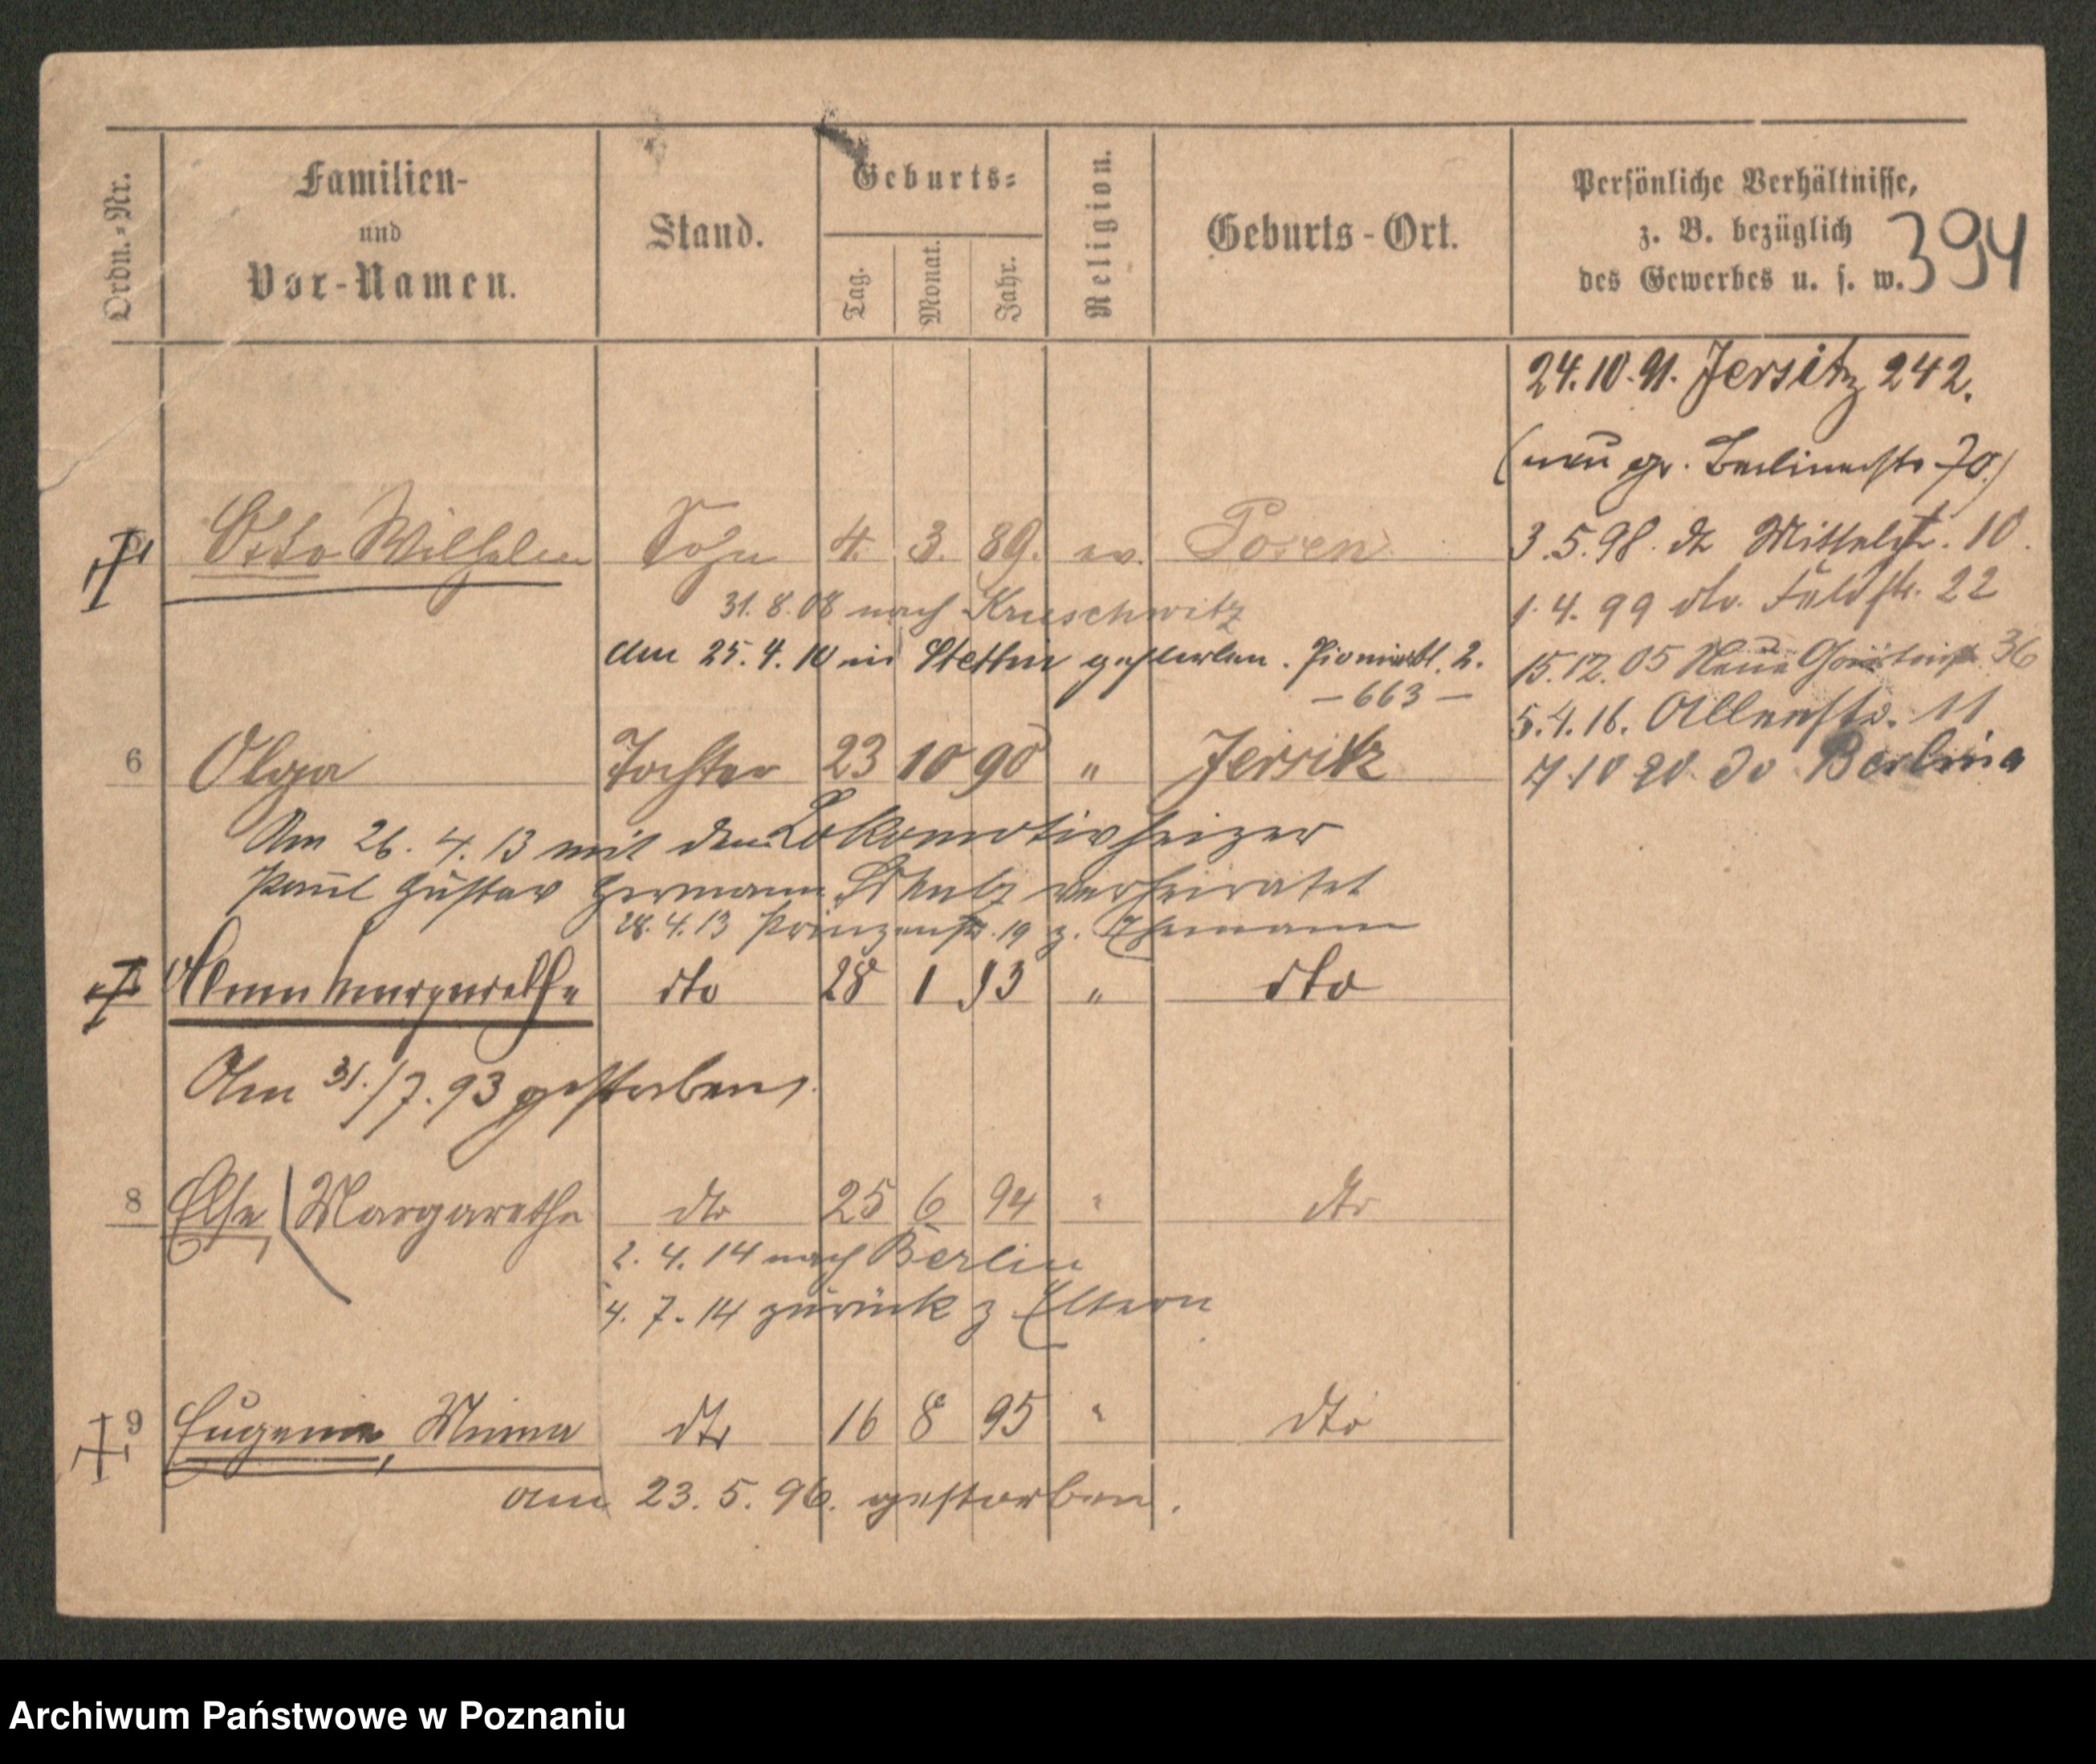 394
Ordn.-Nr.
Familien-
und
Vor-Namen.
Stand.
Geburts-
Tag.
Monat.
Jahr.
Religion.
Geburts-Ort.
Persönliche Verhältnisse,
z. B. bezüglich
des Gewerbes u. s. w.
24.10.91. Jersitz 242.
(neu gr. Berlinerstr 70.)
3.5.98. dt Mittelstr. 10.
1.4.99 dto. Feldstr. 22
15.12.05 Neue Gartenstr. 36
5.4.16. 11
7.10 20 Berlin
Otto Wilhelm Sohn 4. 3. 89. ev. Posen
31.8.08 nach Kruschwitz
am 25.4.10 in Stettin gestorben. Pionierbtl. 2.
— 663 —
6 Olga Tochter 23 10 90 " Jersitz
Am 26.4.13 mit dem Lokomotivheizer
Paul Gustav Hermann Schulz verheiratet
28.4.13 Prinzenstr. 19 z. Ehemann
Anna Margarethe dto 28 1 93 " dto
Am 31./7.93 gestorben.
8 Else Margarethe dto 25 6 94 " dto
2.4.14 nach Berlin
4.7.14 zurück z Eltern
9 Eugenie, Minna dto 16 8 95 " dto
am 23.5.96. gestorben.
Archiwum Państwowe w Poznaniu